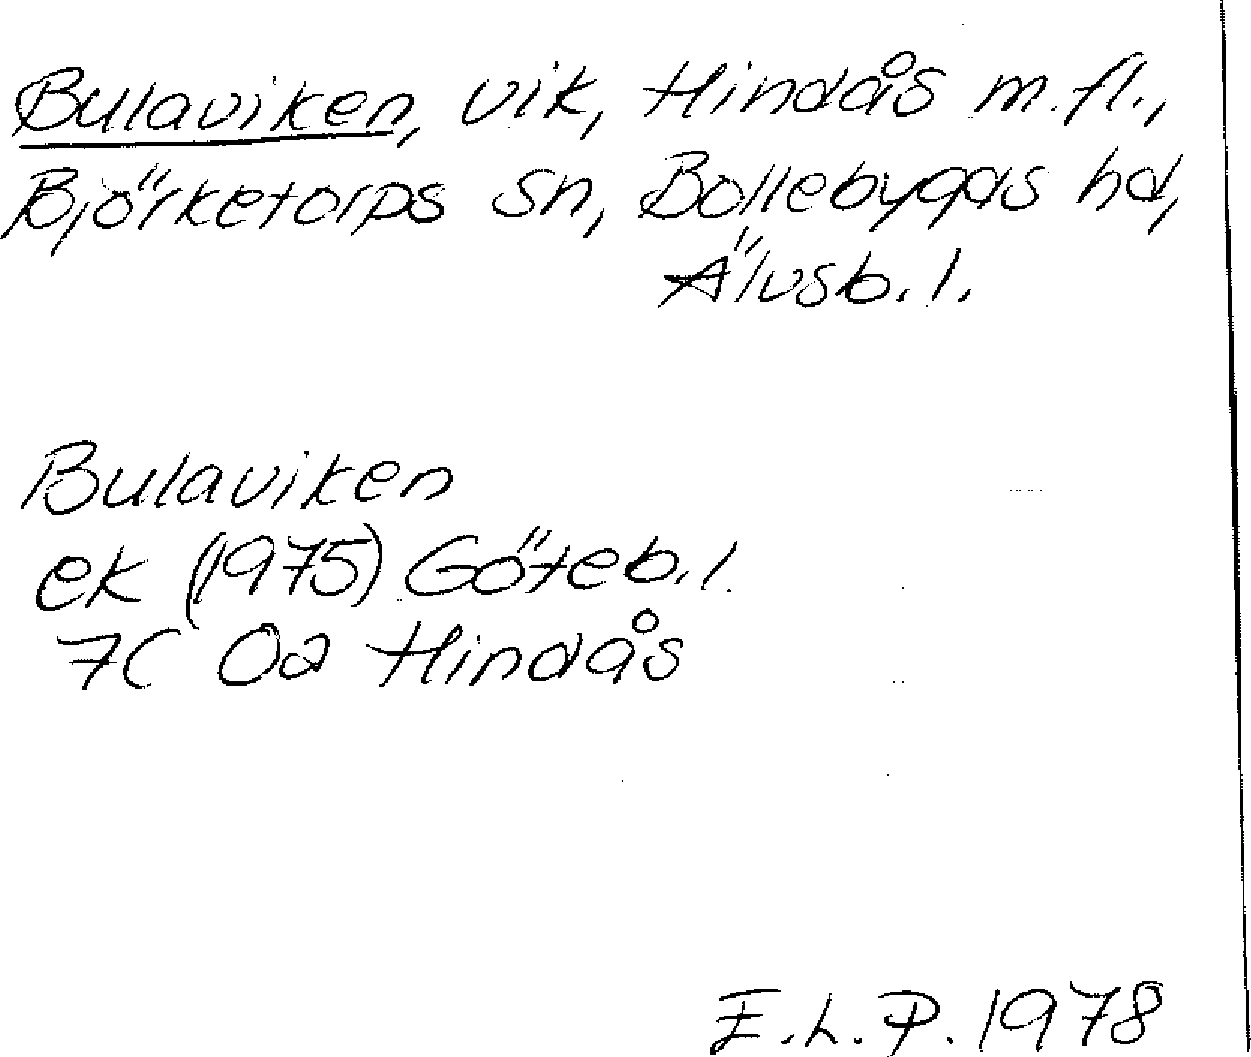 Bulaviken, vik, Hindås m.fl.,
Björketorps sn, Bollebygds hd,
Älvsb.l.
Bulaviken
ek (1975) Göteb.l.
7C 0a Hindås
E.L.P. 1978